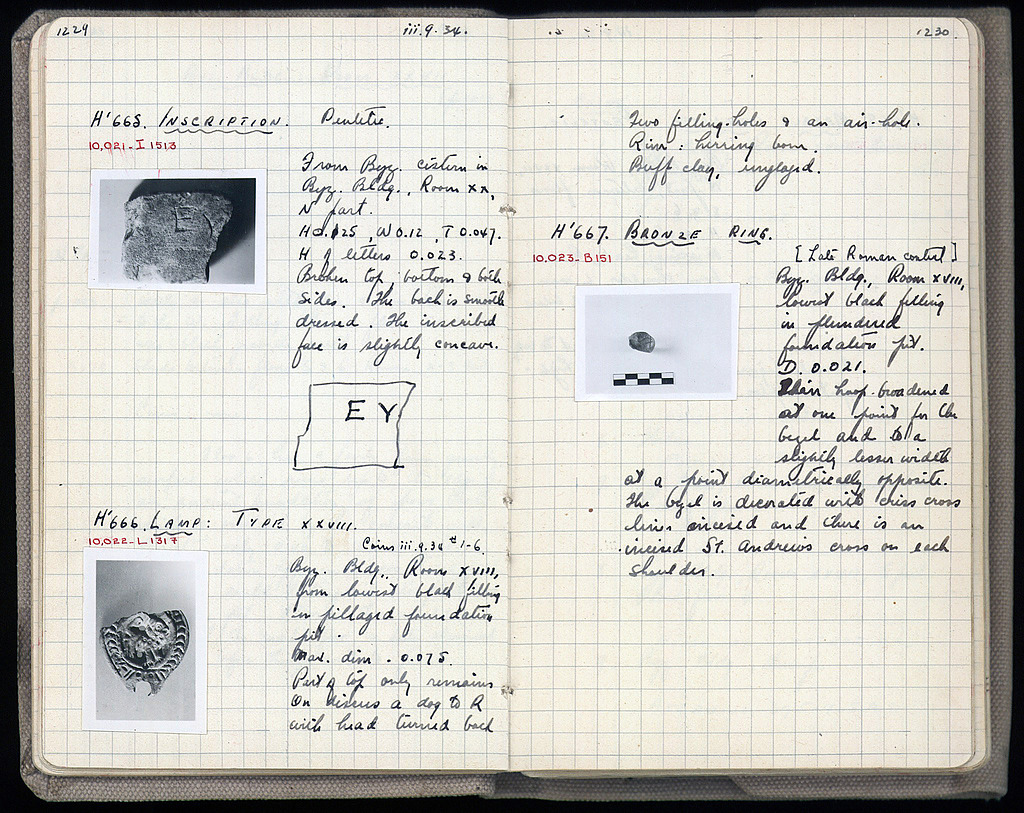 1229
iii.9.34.
H'665. INSCRIPTION. Pentelic.
10,021-I 1513
From Byz. cistern in
Byz. Bldg., Room XX,
N part.
H 0.125, W 0.12, T 0.047.
H of letters 0.023.
Broken top, bottom & both
sides. The back is smooth
dressed. The inscribed
face is slightly concave.
E Y
H'666. LAMP: TYPE XXVIII.
10,022-L1317
Coins iii.9.34 #1-6.
Byz. Bldg., Room XVIII,
from lowest black filling
in pillaged foundation
pit.
Max. dim. 0.075.
Part of top only remains
On discus a dog to R
with head turned back
1230
Two filling-holes & an air-hole.
Rim: herring bone.
Buff clay, unglazed.
H'667. BRONZE RING.
10,023-B151
[Late Roman context]
Byz. Bldg., Room XVIII,
lowest black filling
in plundered
foundation pit.
D. 0.021.
Thin hoop broadened
at one point for the
bezel and to a
slightly lesser width
at a point diametrically opposite.
The bezel is decorated with criss cross
lines incised and there is an
incised St. Andrews cross on each
shoulder.